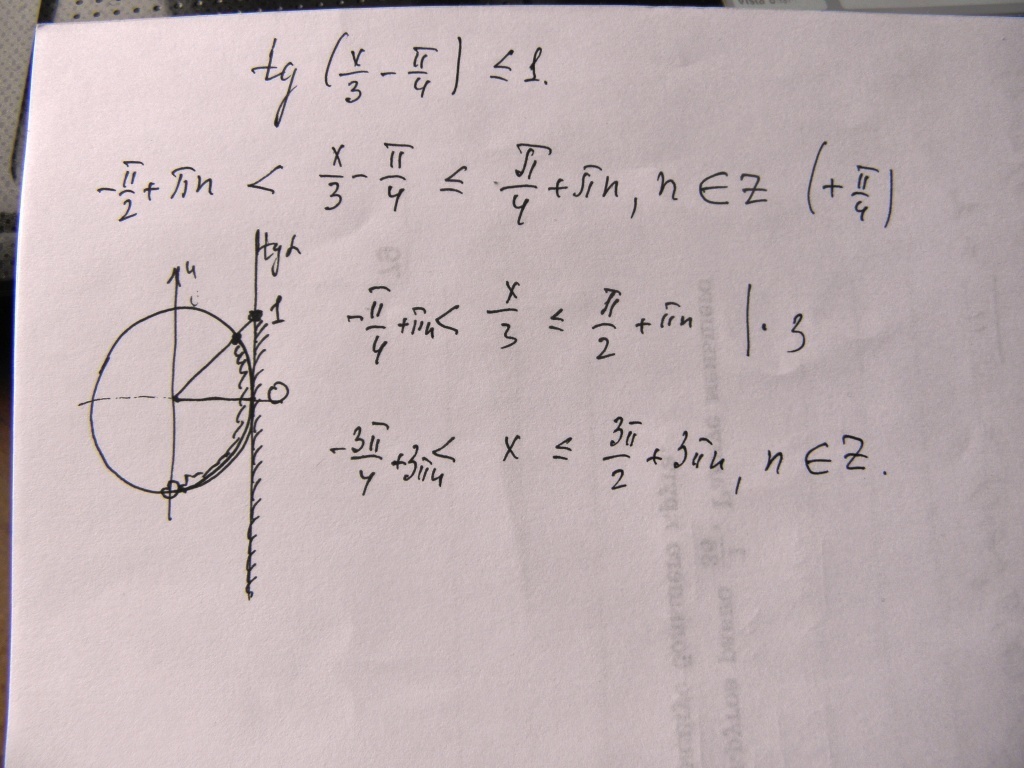 tg (x/3 - π/4) ≤ 1.
-π/2 + πn < x/3 - π/4 ≤ π/4 + πn, n ∈ Z (+π/4)
tgα
y
1
0
-π/4 + πn < x/3 ≤ π/2 + πn | · 3
-3π/4 + 3πn < x ≤ 3π/2 + 3πn, n ∈ Z.